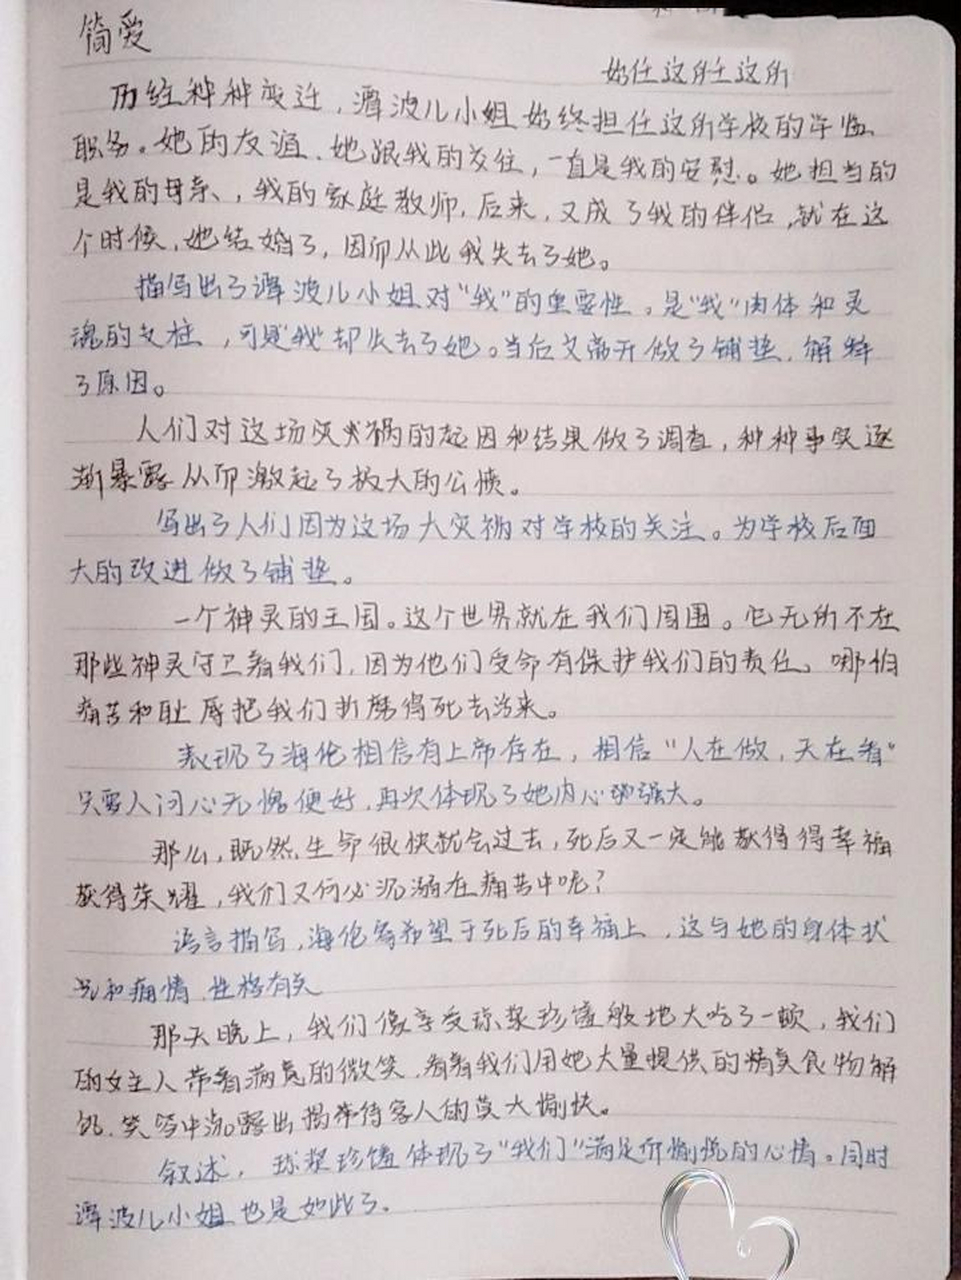 简爱
始任这所任这所
历经种种变迁，潭波儿小姐始终担任这所学校的学监
职务。她的友谊、她跟我的交往，一直是我的安慰。她担当的
是我的母亲、，我的家庭教师，后来，又成了我的伴侣，就在这
个时候，她结婚了，因而从此我失去了她。
描写出了潭波儿小姐对“我”的重要性。是“我”肉体和灵
魂的支柱，可是“我”却失去了她。当后文离开做了铺垫，解释
了原因。
人们对这场灾祸的起因和结果做了调查，种种事实逐
渐暴露从而激起了极大的公愤。
写出了人们因为这场大灾祸对学校的关注。为学校后面
大的改进做了铺垫。
一个神灵的王国。这个世界就在我们周围。它无所不在
那些神灵守卫着我们，因为他们受命有保护我们的责任。哪怕
痛苦和耻辱把我们折磨得死去活来。
表现了海伦相信有上帝存在，相信“人在做，天在看”
只要人问心无愧便好，再次体现了她内心的强大。
那么，既然生命很快就会过去，死后又一定能获得得幸福
获得荣耀，我们又何必沉溺在痛苦中呢？
语言描写，海伦寄希望于死后的幸福上，这与她的身体状
况和病情、性格有关
那天晚上，我们像享受琼浆珍馐般地大吃了一顿，我们
的女主人带着满意的微笑，看着我们用她大量提供的精美食物解
饥，笑容中流露出招待客人的莫大愉快。
叙述，琼浆珍馐体现了“我们”满足而愉悦的心情。同时
潭波儿小姐也是如此了。